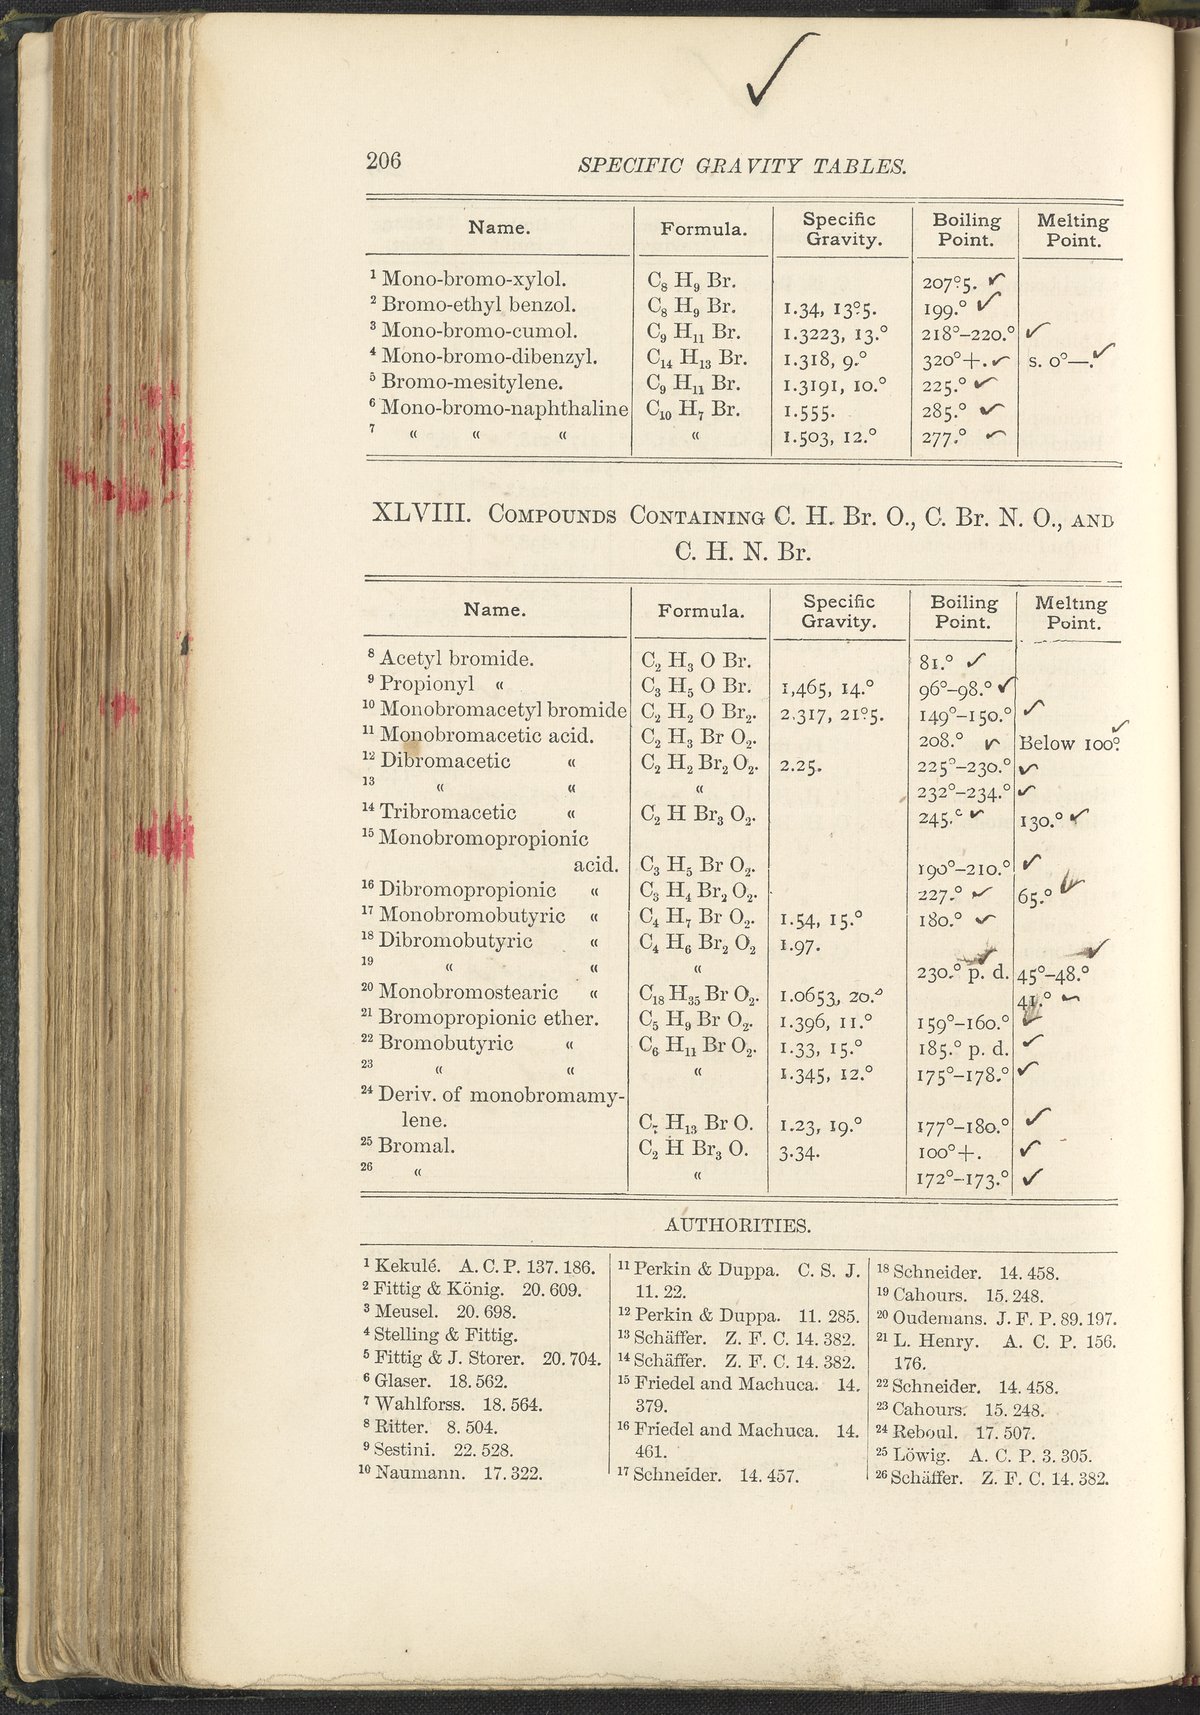 206 SPECIFIC GRAVITY TABLES.
Name. Formula. Specific Gravity. Boiling Point. Melting Point.
¹ Mono-bromo-xylol. C₈ H₉ Br. 207°5. ✓
² Bromo-ethyl benzol. C₈ H₉ Br. 1.34, 13°5. 199.° ✓
³ Mono-bromo-cumol. C₉ H₁₁ Br. 1.3223, 13.° 218°–220.° ✓
⁴ Mono-bromo-dibenzyl. C₁₄ H₁₃ Br. 1.318, 9.° 320°+. ✓ s. 0°—. ✓
⁵ Bromo-mesitylene. C₉ H₁₁ Br. 1.3191, 10.° 225.° ✓
⁶ Mono-bromo-naphthaline C₁₀ H₇ Br. 1.555. 285.° ✓
⁷ “ “ “ “ 1.503, 12.° 277.° ✓
XLVIII. COMPOUNDS CONTAINING C. H. Br. O., C. Br. N. O., AND
C. H. N. Br.
Name. Formula. Specific Gravity. Boiling Point. Melting Point.
⁸ Acetyl bromide. C₂ H₃ O Br. 81.° ✓
⁹ Propionyl “ C₃ H₅ O Br. 1,465, 14.° 96°–98.° ✓
¹⁰ Monobromacetyl bromide C₂ H₂ O Br₂. 2.317, 21°5. 149°–150.° ✓
¹¹ Monobromacetic acid. C₂ H₃ Br O₂. 208.° ✓ Below 100° ✓
¹² Dibromacetic “ C₂ H₂ Br₂ O₂. 2.25. 225°–230.° ✓
¹³ “ “ “ 232°–234.° ✓
¹⁴ Tribromacetic “ C₂ H Br₃ O₂. 245.° ✓ 130.° ✓
¹⁵ Monobromopropionic
acid. C₃ H₅ Br O₂. 190°–210.° ✓
¹⁶ Dibromopropionic “ C₃ H₄ Br₂ O₂. 227.° ✓ 65.° ✓
¹⁷ Monobromobutyric “ C₄ H₇ Br O₂. 1.54, 15.° 180.° ✓
¹⁸ Dibromobutyric “ C₄ H₆ Br₂ O₂ 1.97.
¹⁹ “ “ “ 230.° p. d. ✓ 45°–48.° ✓
²⁰ Monobromostearic “ C₁₈ H₃₅ Br O₂. 1.0653, 20.° 41.° ✓
²¹ Bromopropionic ether. C₅ H₉ Br O₂. 1.396, 11.° 159°–160.° ✓
²² Bromobutyric “ C₆ H₁₁ Br O₂. 1.33, 15.° 185.° p. d. ✓
²³ “ “ “ 1.345, 12.° 175°–178.° ✓
²⁴ Deriv. of monobromamy-
lene. C₇ H₁₃ Br O. 1.23, 19.° 177°–180.° ✓
²⁵ Bromal. C₂ H Br₃ O. 3.34. 100°+. ✓
²⁶ “ “ 172°–173.° ✓
AUTHORITIES.
¹ Kekulé. A. C. P. 137. 186.
² Fittig & König. 20. 609.
³ Meusel. 20. 698.
⁴ Stelling & Fittig.
⁵ Fittig & J. Storer. 20. 704.
⁶ Glaser. 18. 562.
⁷ Wahlforss. 18. 564.
⁸ Ritter. 8. 504.
⁹ Sestini. 22. 528.
¹⁰ Naumann. 17. 322.
¹¹ Perkin & Duppa. C. S. J.
11. 22.
¹² Perkin & Duppa. 11. 285.
¹³ Schäffer. Z. F. C. 14. 382.
¹⁴ Schäffer. Z. F. C. 14. 382.
¹⁵ Friedel and Machuca. 14.
379.
¹⁶ Friedel and Machuca. 14.
461.
¹⁷ Schneider. 14. 457.
¹⁸ Schneider. 14. 458.
¹⁹ Cahours. 15. 248.
²⁰ Oudemans. J. F. P. 89. 197.
²¹ L. Henry. A. C. P. 156.
176.
²² Schneider. 14. 458.
²³ Cahours. 15. 248.
²⁴ Reboul. 17. 507.
²⁵ Löwig. A. C. P. 3. 305.
²⁶ Schäffer. Z. F. C. 14. 382.